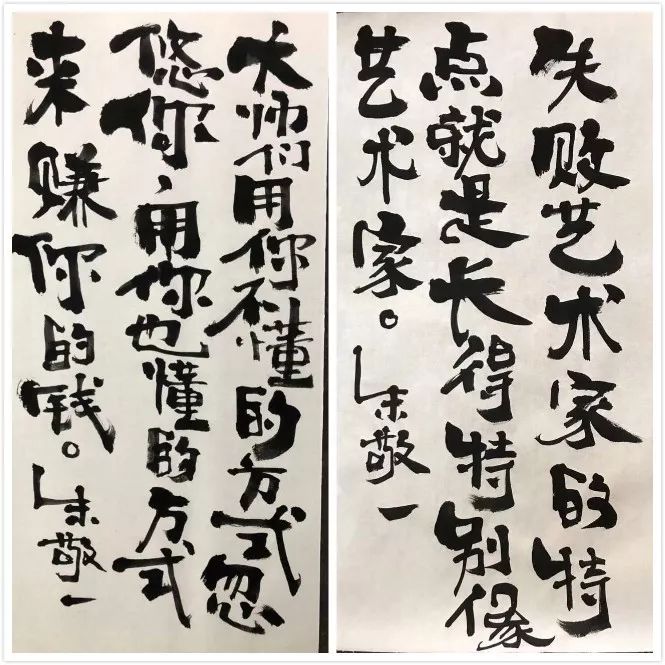 大师们用你不懂的方式忽
悠你，用你也懂的方式
来赚你的钱。朱敬一
失败艺术家的特
点就是长得特别像
艺术家。朱敬一